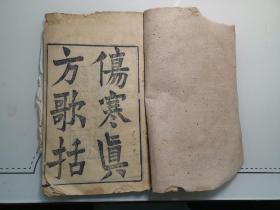 傷寒眞
方歌括